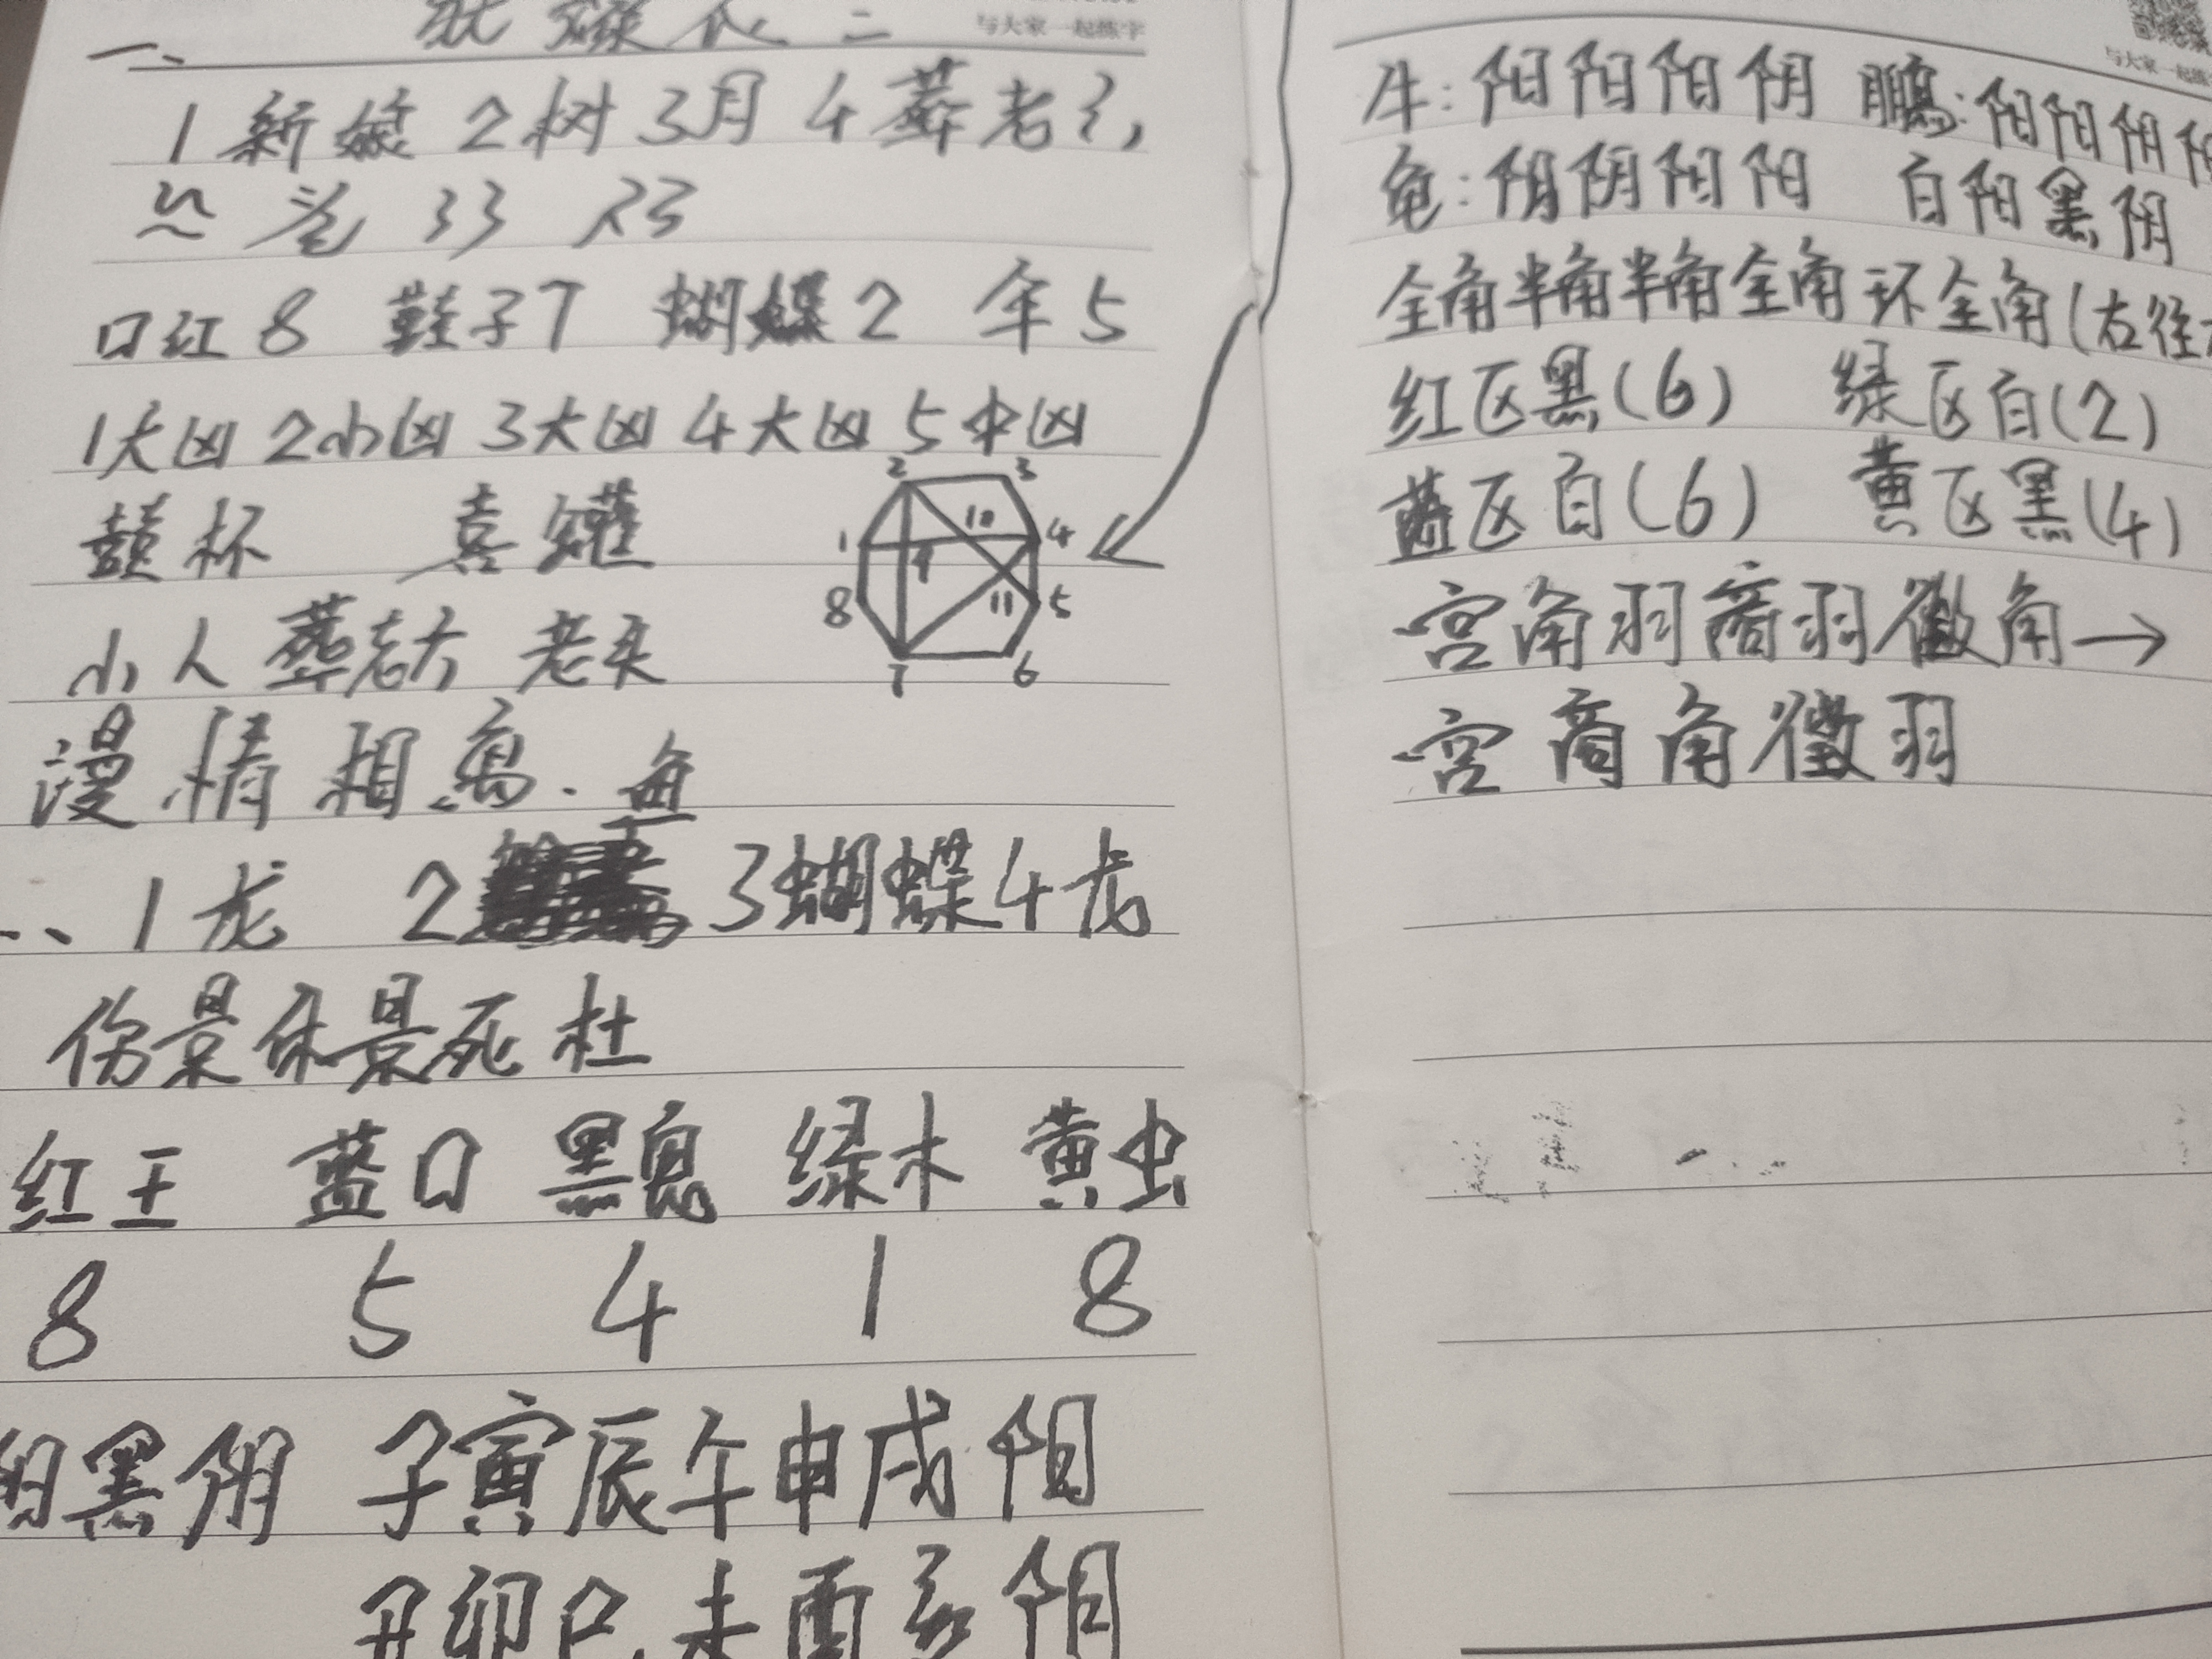 一、
与大家一起练字
1 新娘 2 树 3 月 4 葬老
口红 8 鞋子 7 蝴蝶 2 伞 5
1大凶 2小凶 3大凶 4大凶 5中凶
杯 喜
小人 葬
漫 情 相 离
1 龙 2 3 蝴蝶 4 龙
伤景休景死杜
红王 蓝口 黑息 绿木 黄虫
8 5 4 1 8
阳黑阴 子寅辰午申戌阳
丑卯巳未酉亥阴
2 3
1 10 4
9
8 11 5
7 6
与大家一起练
牛：阳阳阳阴 鹏：阳阳阴
龟：阴阴阳阳 白阳黑阴
全角半角半角全角环全角（右往
红区黑（6） 绿区白（2）
蓝区白（6） 黄区黑（4）
宫角羽商羽徵角→
宫商角徵羽